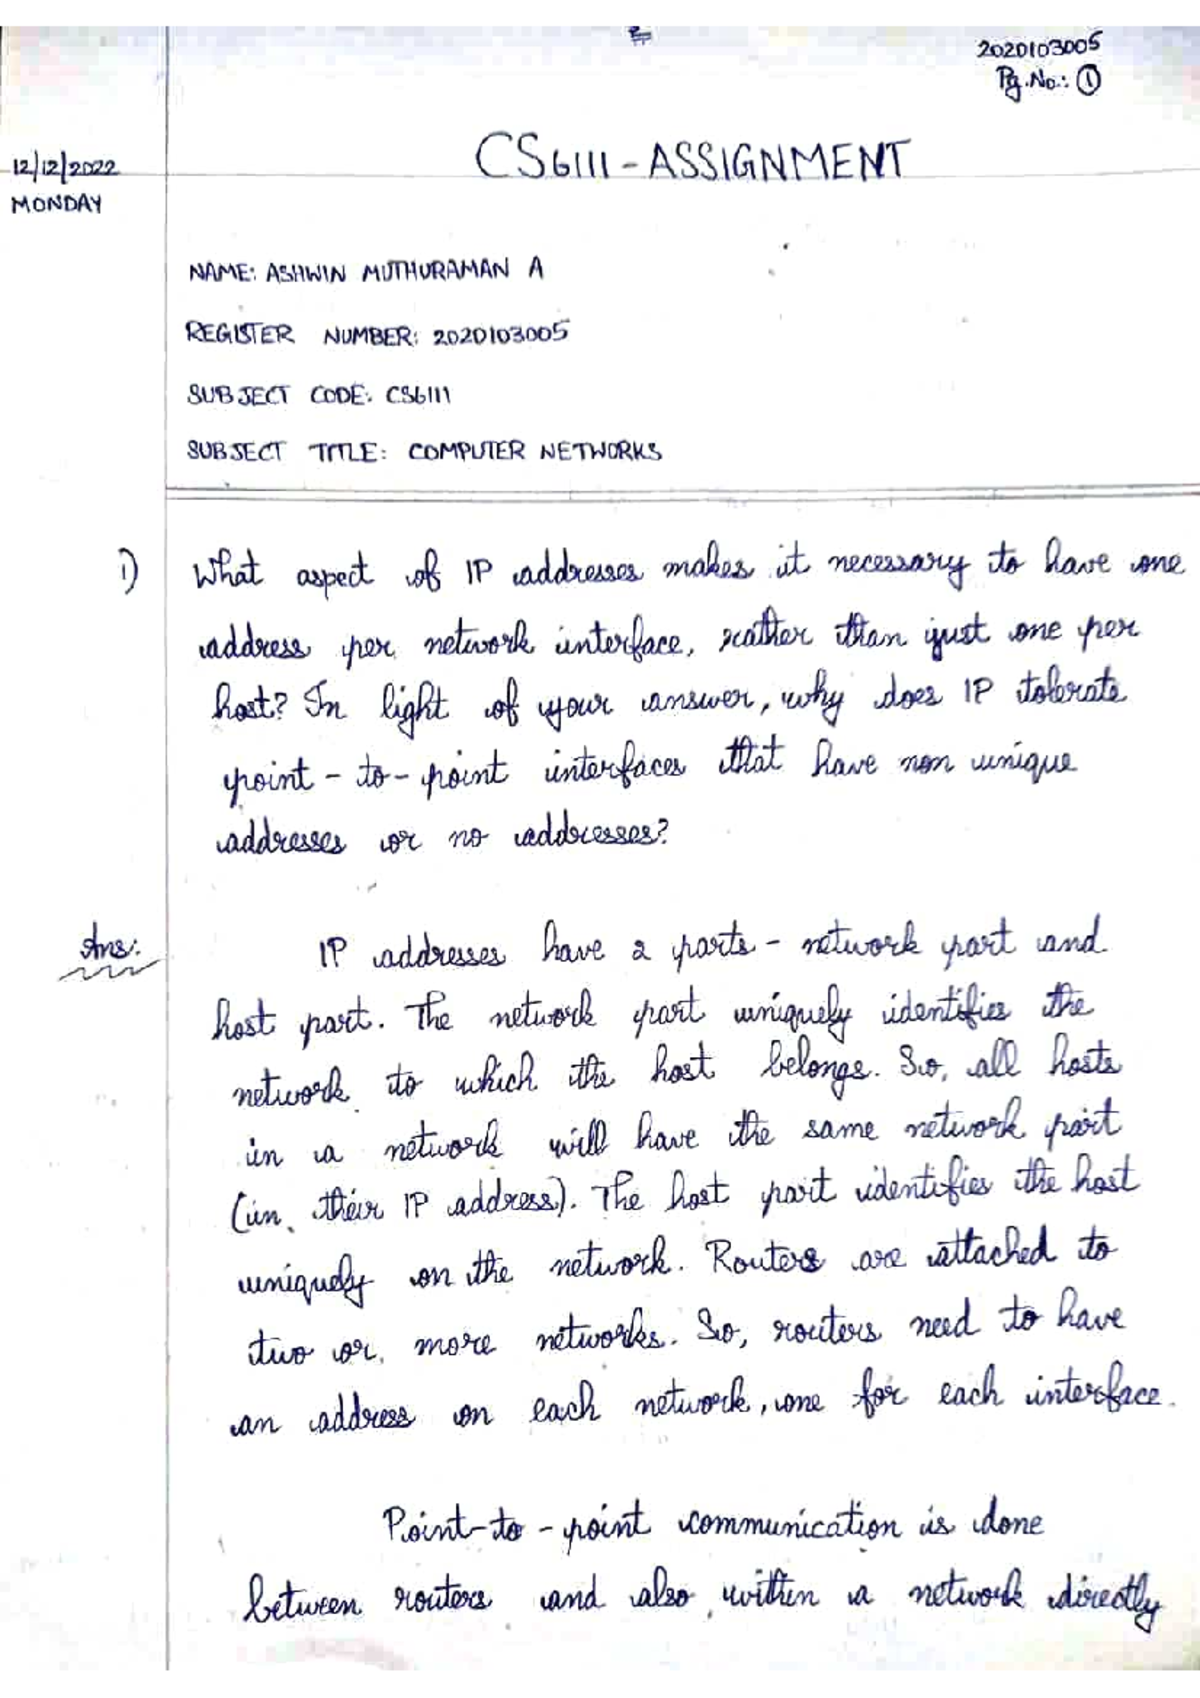 2020103005
Pg.No.: 1
12/12/2022
MONDAY
CS6111 - ASSIGNMENT
NAME: ASHWIN MUTHURAMAN A
REGISTER NUMBER: 2020103005
SUBJECT CODE: CS6111
SUBJECT TITLE: COMPUTER NETWORKS
1) What aspect of IP addresses makes it necessary to have one
address per network interface, rather than just one per
host? In light of your answer, why does IP tolerate
point-to-point interfaces that have non unique
addresses or no addresses?
Ans: IP addresses have 2 parts - network part and
host part. The network part uniquely identifies the
network to which the host belongs. So, all hosts
in a network will have the same network part
(in their IP address). The host part identifies the host
uniquely on the network. Routers are attached to
two or more networks. So, routers need to have
an address on each network, one for each interface.
Point-to-point communication is done
between routers and also within a network directly